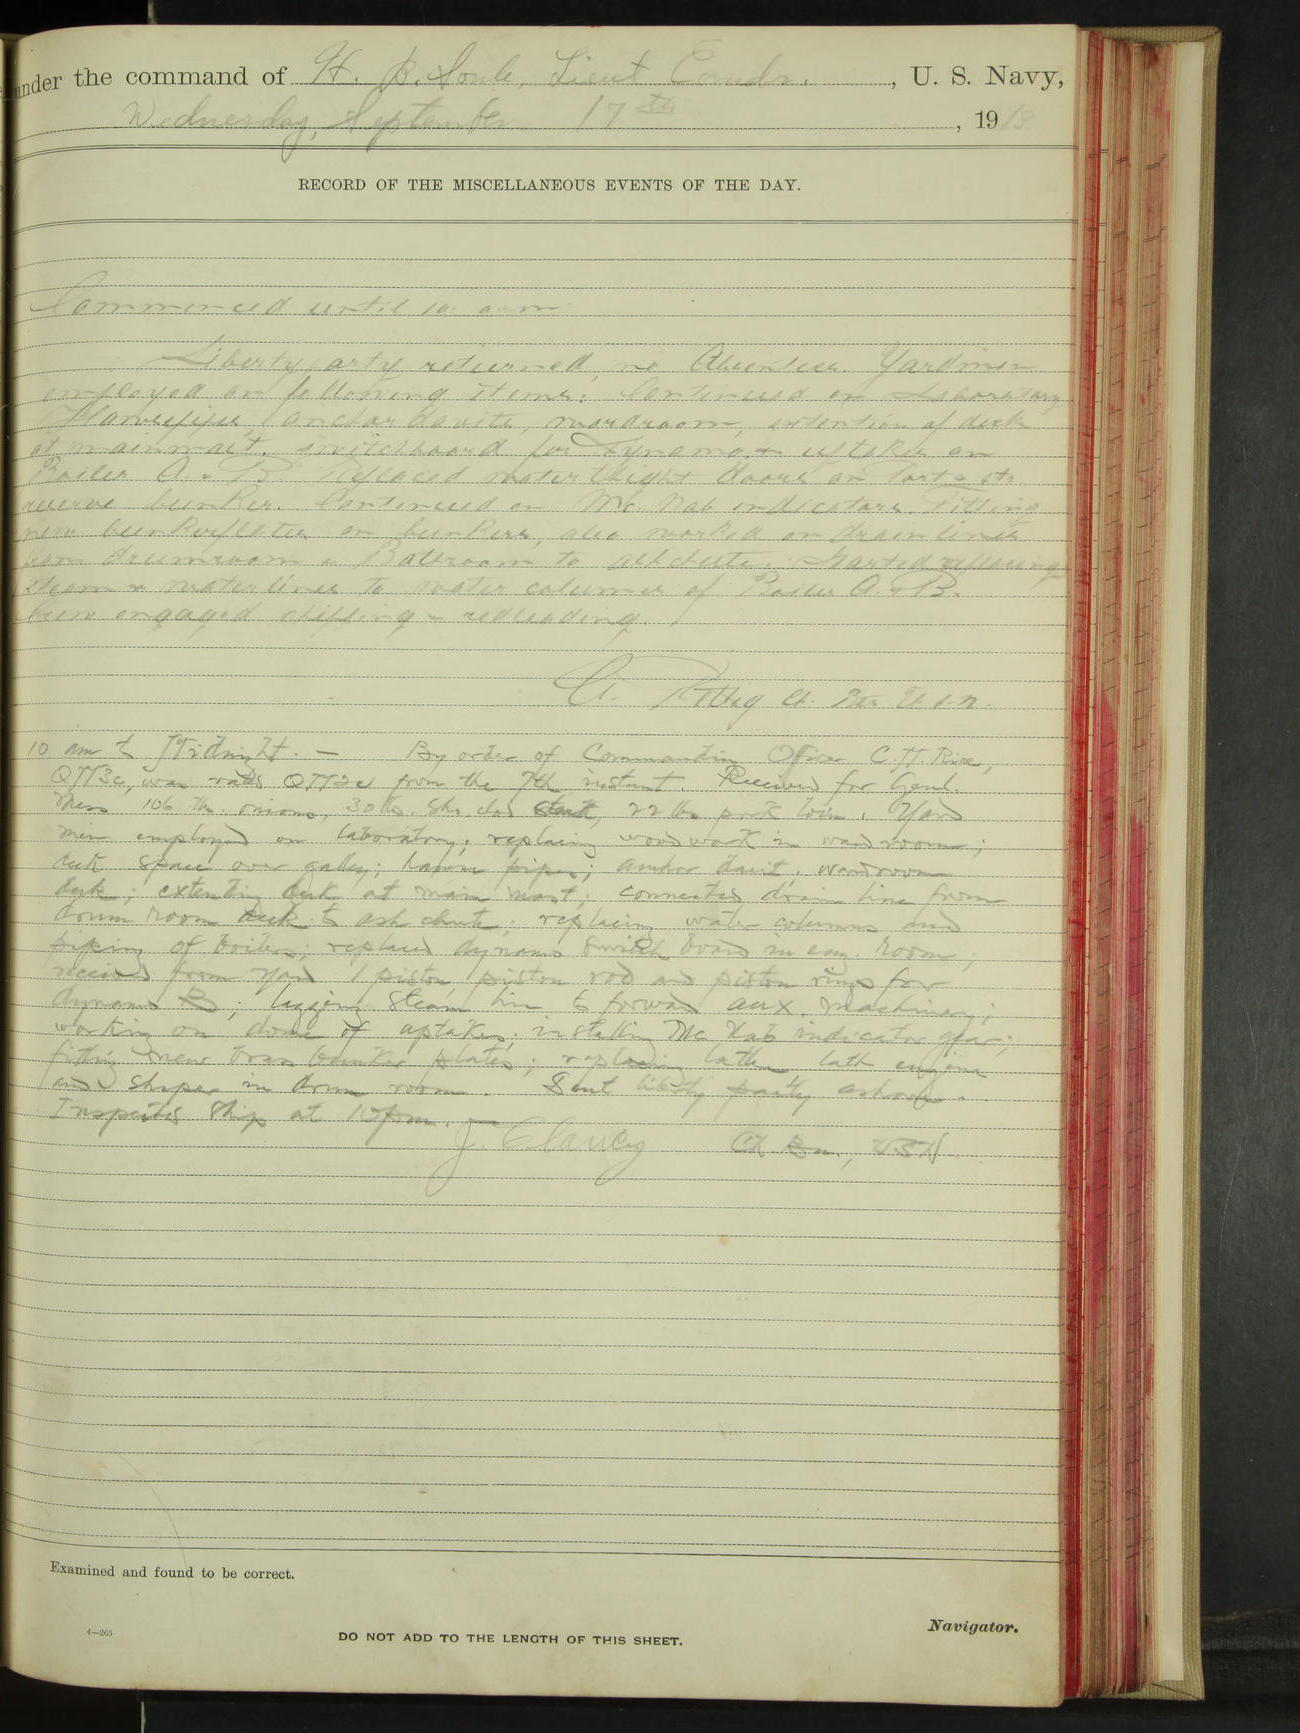 under the command of H. B. Soule, Lieut Comdr. , U. S. Navy,
Wednesday, September 17th , 1913
RECORD OF THE MISCELLANEOUS EVENTS OF THE DAY.
Commenced until 10 a.m.
Liberty party returned, no Absentees. Yardmen
employed on following items: Continued on Laboratory
Hawsepipes anchor davits, wardroom, extention of deck
at mainmast. switchboard for Dynamo, & uptakes on
Boiler A. & B. Replaced waterthight doors on Port & stb.
reserve bunker. Continued on Mc. Nab indicators. Fitting
new bunkerplates on bunkers, also worked on drainlines
from drumroom & Bathroom to ashchute. Started replacing
steam & waterlines to water columns of Boiler A. & B.
Crew engaged chipping & redleading.
10 am to Midnight. — By order of Commanding Officer C. H. Rice,
QM3c, was rated QM2c from the 7th instant. Received for Genl.
Mess 106 lbs. onions, 30 lbs. shoulder steak, 22 lbs pork loin. Yard
men employed on laboratory; replacing woodwork in wardroom;
deck space over galley; hawse pipes; anchor davit; wardroom
deck; extending deck at main mast; connected drain line from
drum room deck to ash chute; replacing water columns and
piping of boilers; replaced dynamo switch board in eng. room;
received from Yard 1 piston, piston rod and piston rings for
dynamo B; lagging steam line to forward aux. machinery;
working on dome of uptakes, installing Mc Nab indicator gear;
fitting new brass bunker plates; replacing lathe, lath engine
and shaper in drum room. Sent liberty party ashore.
Inspected ship at 10 pm. —
J. Clancy Ch. Bsn., USN.
Examined and found to be correct.
4—265
DO NOT ADD TO THE LENGTH OF THIS SHEET.
Navigator.